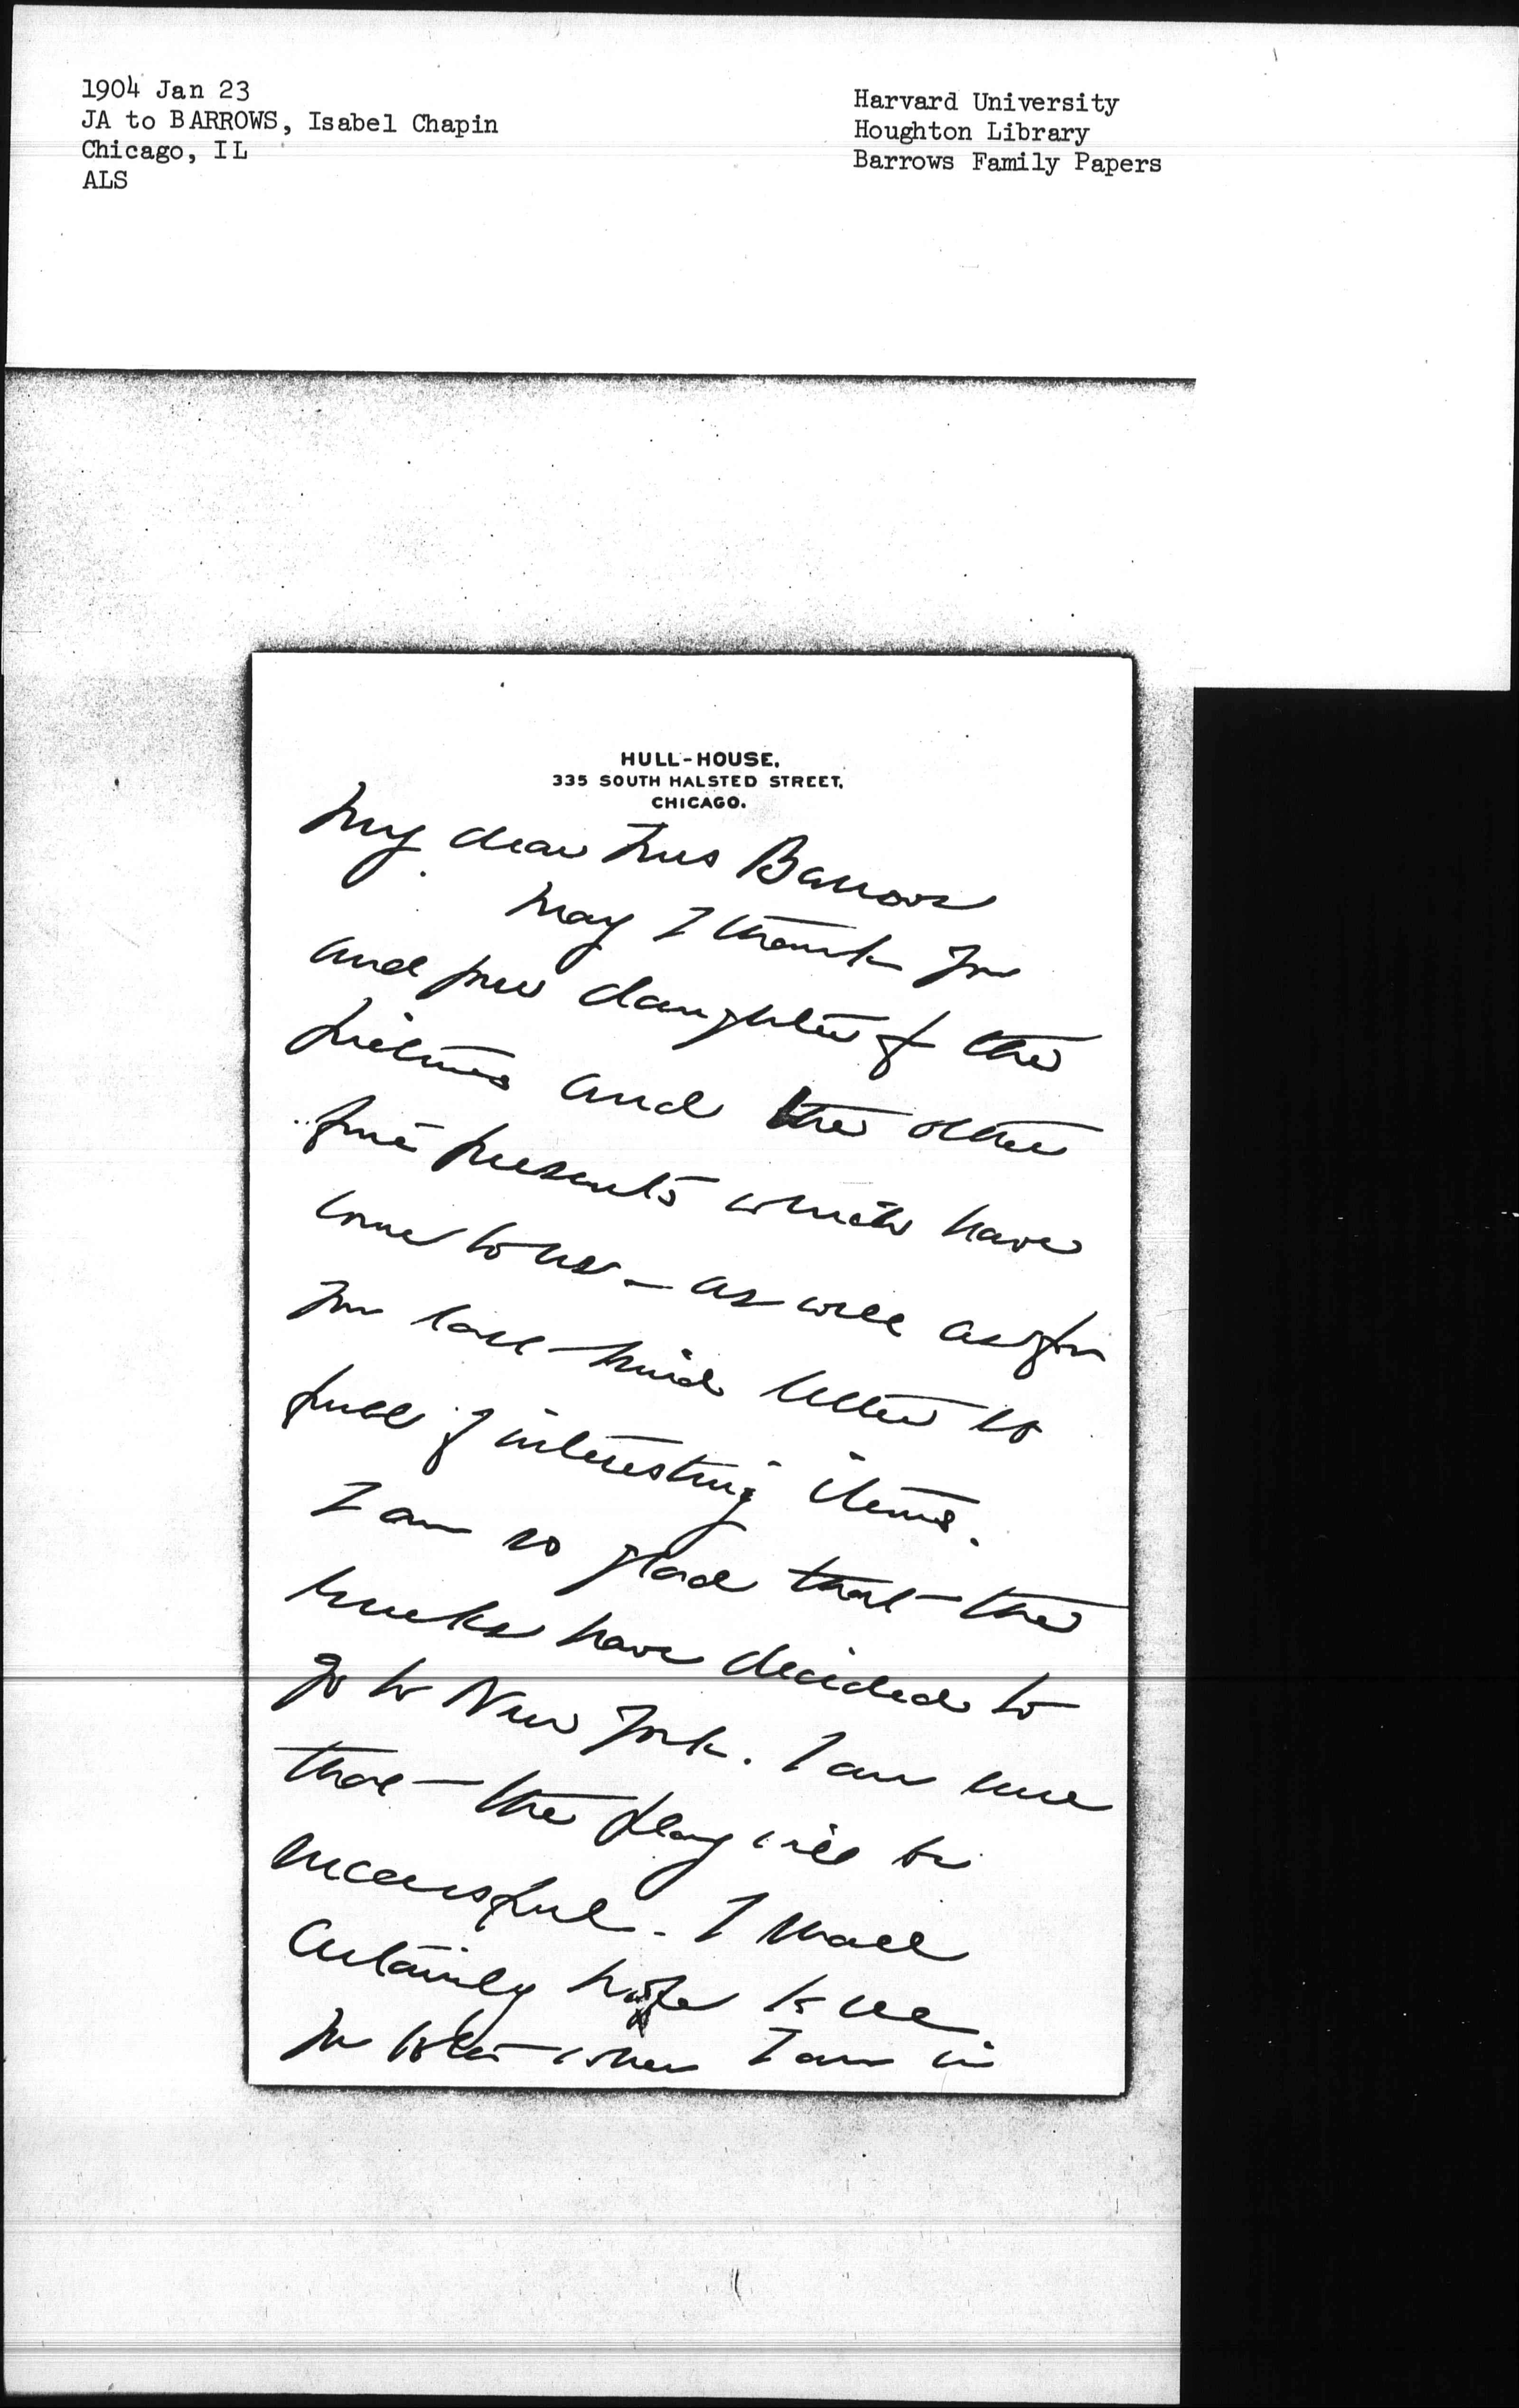 1904 Jan 23
JA to BARROWS, Isabel Chapin
Chicago, IL
ALS
Harvard University
Houghton Library
Barrows Family Papers
HULL-HOUSE,
335 SOUTH HALSTED STREET,
CHICAGO.
My dear Mrs Barrows
May I thank you
and your daughter for the
pictures and the other
fine presents which have
come to us — as well as for
your last kind letter so
full of interesting items.
I am so glad that the
Greeks have decided to
go to New York. I am sure
that the play will be
successful. I shall
certainly hope to see
you both when I am in